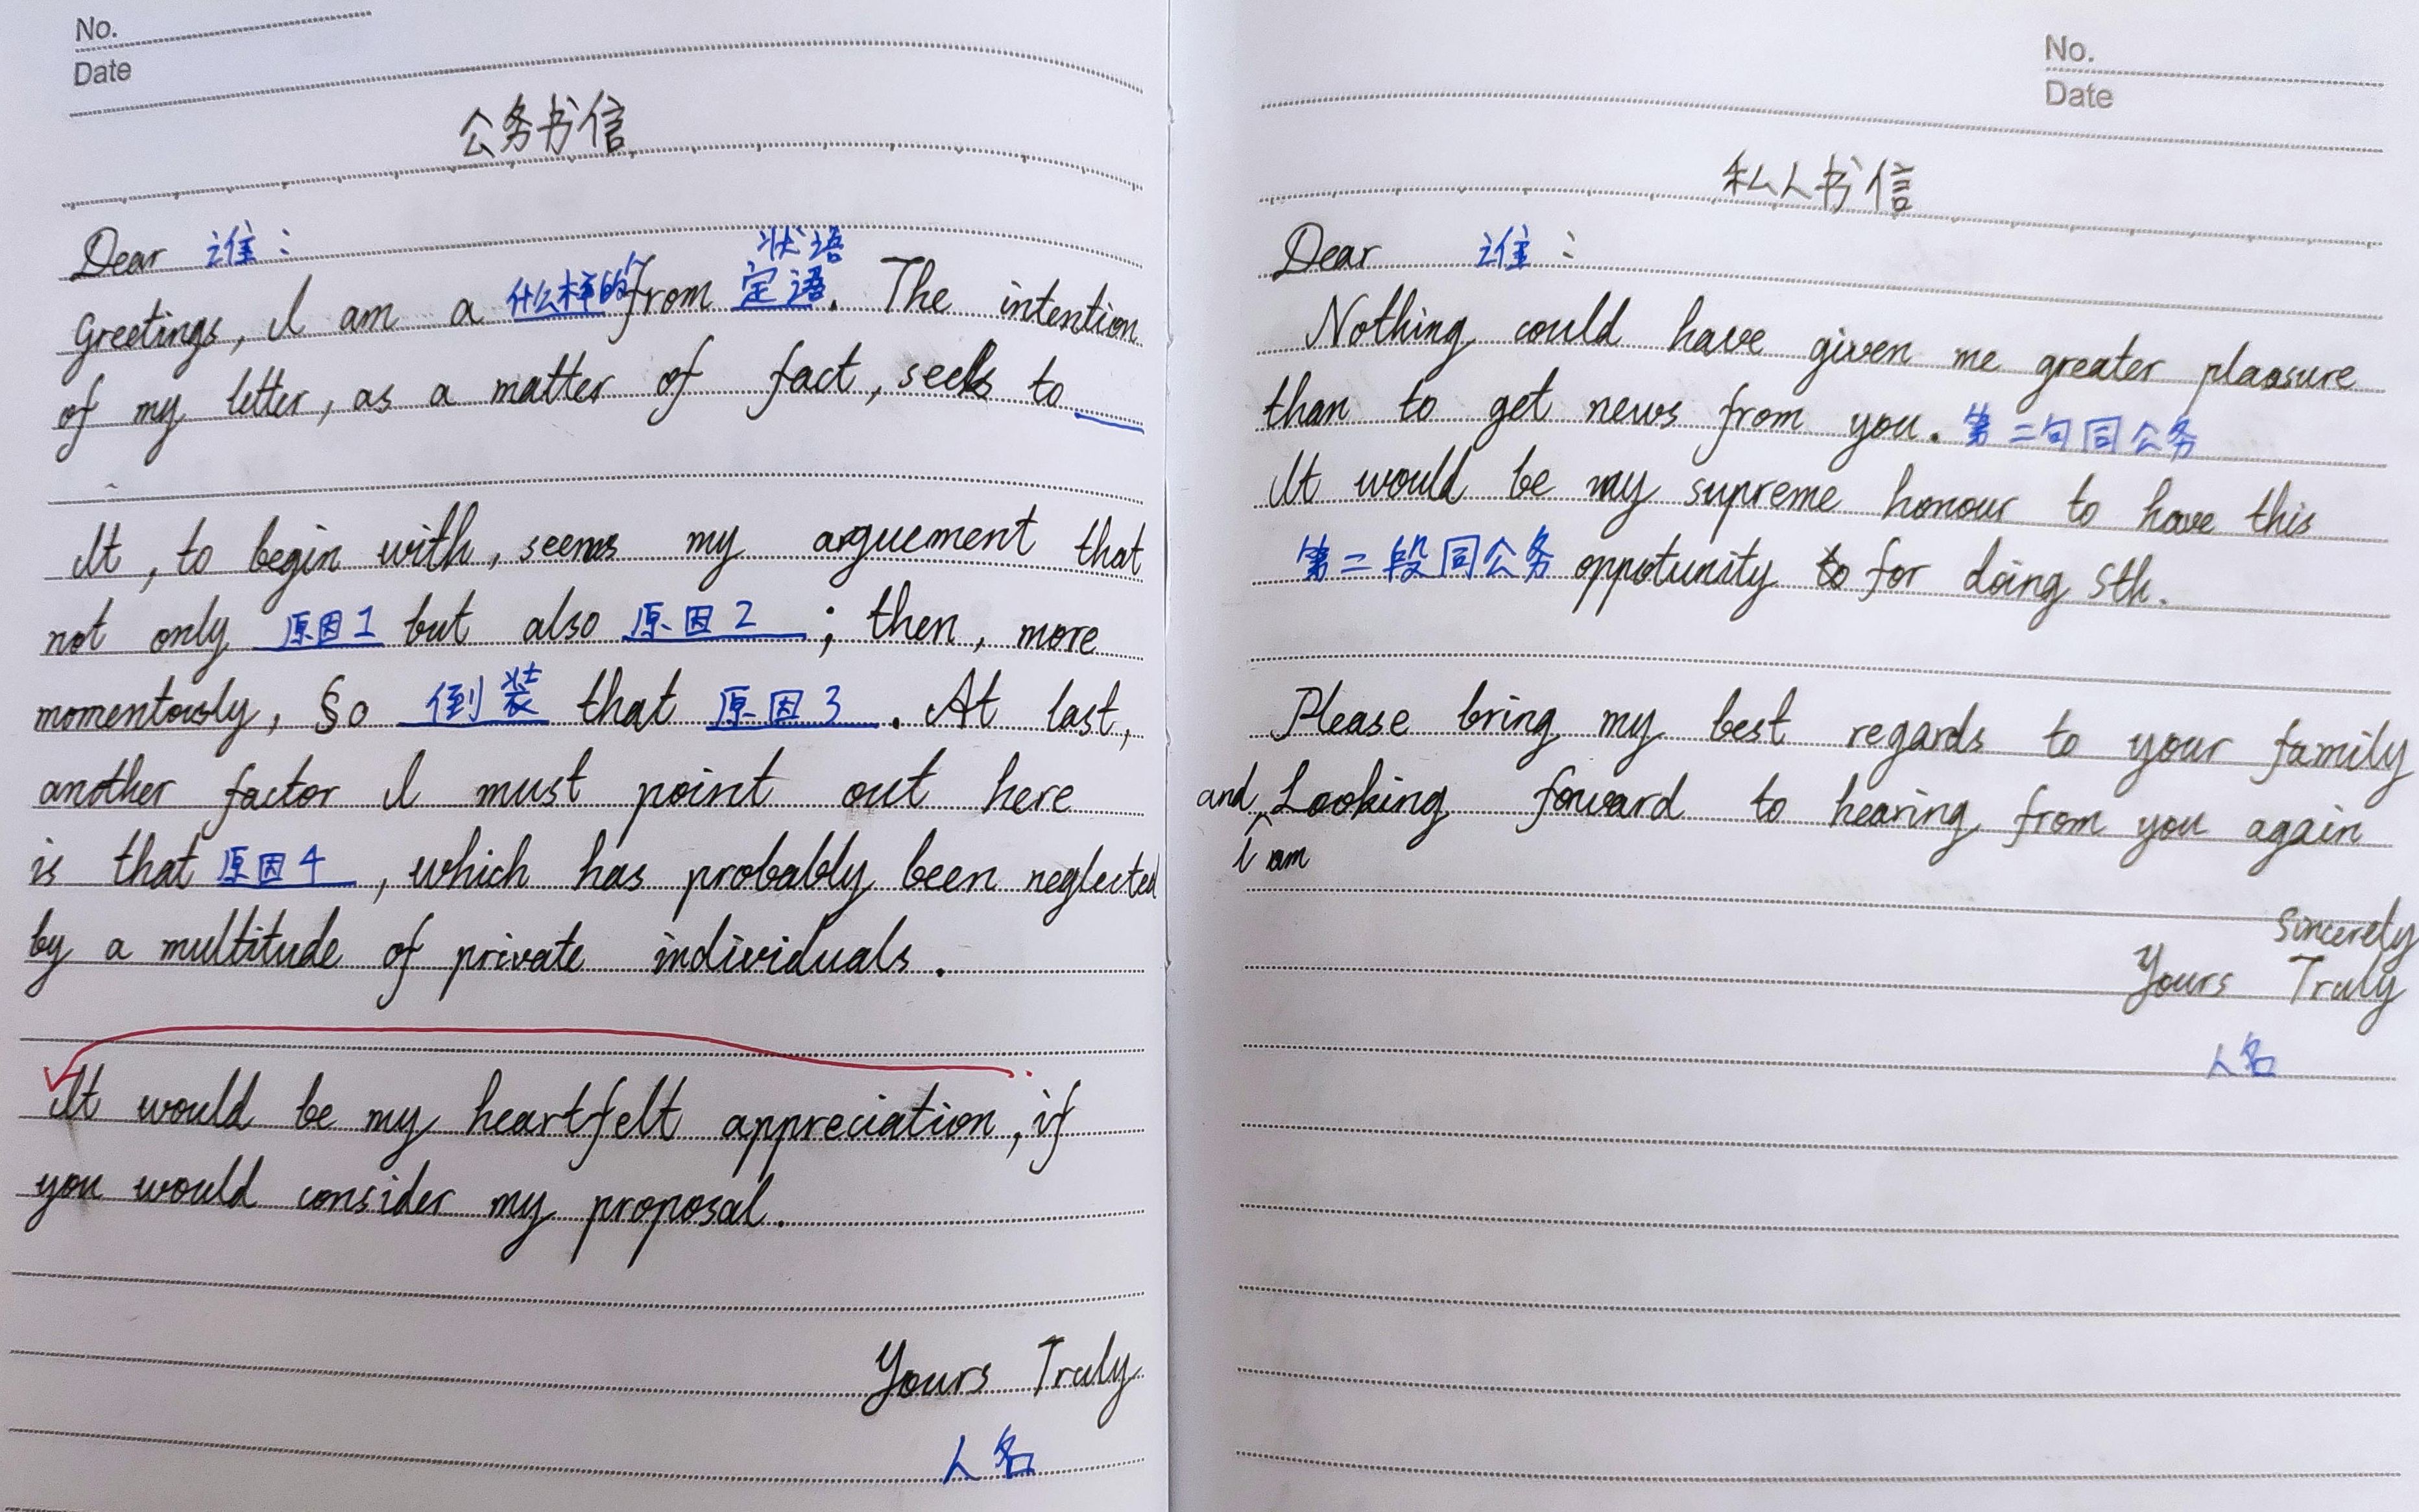 No.
Date
公务书信
Dear 谁：
状语
Greetings, I am a 什么样的 from 定语. The intention
of my letter, as a matter of fact, seeks to
It, to begin with, seems my arguement that
not only 原因1 but also 原因2 ; then, more
momentously, So 倒装 that 原因3. At last,
another factor I must point out here
is that 原因4, which has probably been neglected
by a multitude of private individuals.
It would be my heartfelt appreciation, if
you would consider my proposal.
Yours Truly
人名
No.
Date
私人书信
Dear 谁：
Nothing could have given me greater pleasure
than to get news from you. 第二句同公务
It would be my supreme honour to have this
第二段同公务 oppotunity for doing sth.
Please bring my best regards to your family
and Looking forward to hearing from you again
i am
Sincerely
Yours Truly
人名